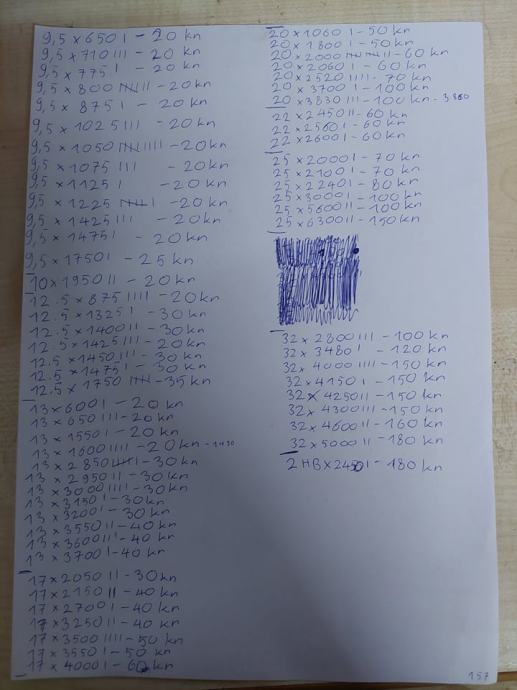 9,5 x 650 I - 20 kn
9,5 x 710 III - 20 kn
9,5 x 775 I - 20 kn
9,5 x 800 - 20 kn
9,5 x 875 I - 20 kn
9,5 x 1025 III - 20 kn
9,5 x 1050 - 20 kn
9,5 x 1075 III - 20 kn
9,5 x 1125 I - 20 kn
9,5 x 1225 - 20 kn
9,5 x 1425 III - 20 kn
9,5 x 1475 I - 20 kn
9,5 x 1750 I - 25 kn
10 x 1950 II - 20 kn
12.5 x 875 IIII - 20 kn
12.5 x 1325 I - 30 kn
12.5 x 1400 II - 30 kn
12.5 x 1425 III - 20 kn
12.5 x 1450 III - 30 kn
12.5 x 1475 I - 30 kn
12.5 x 1750 - 35 kn
13 x 600 I - 20 kn
13 x 650 III - 20 kn
13 x 1550 I - 20 kn
13 x 1600 IIII - 20 kn - 1430
13 x 2850 - 30 kn
13 x 2950 II - 30 kn
13 x 3000 IIII - 30 kn
13 x 3150 I - 30 kn
13 x 3200 I - 30 kn
13 x 3550 II - 40 kn
13 x 3600 II - 40 kn
13 x 3700 I - 40 kn
17 x 2050 II - 30 kn
17 x 2150 II - 40 kn
17 x 2700 I - 40 kn
17 x 3250 II - 40 kn
17 x 3500 IIII - 50 kn
17 x 3550 I - 50 kn
17 x 4000 I - 60 kn
20 x 1060 I - 50 kn
20 x 1800 I - 50 kn
20 x 2000 - 60 kn
20 x 2060 I - 60 kn
20 x 2520 IIII - 70 kn
20 x 3700 I - 100 kn
20 x 3830 III - 100 kn - 3860
22 x 2450 II - 60 kn
22 x 2560 I - 60 kn
22 x 2600 I - 60 kn
25 x 2000 I - 70 kn
25 x 2100 I - 70 kn
25 x 2240 I - 80 kn
25 x 3000 I - 100 kn
25 x 5600 II - 100 kn
25 x 6300 II - 150 kn
32 x 2800 III - 100 kn
32 x 3480 I - 120 kn
32 x 4000 IIII - 150 kn
32 x 4150 I - 150 kn
32 x 4250 II - 150 kn
32 x 4300 III - 150 kn
32 x 4600 II - 160 kn
32 x 5000 II - 180 kn
2 HB x 2450 I - 180 kn
157